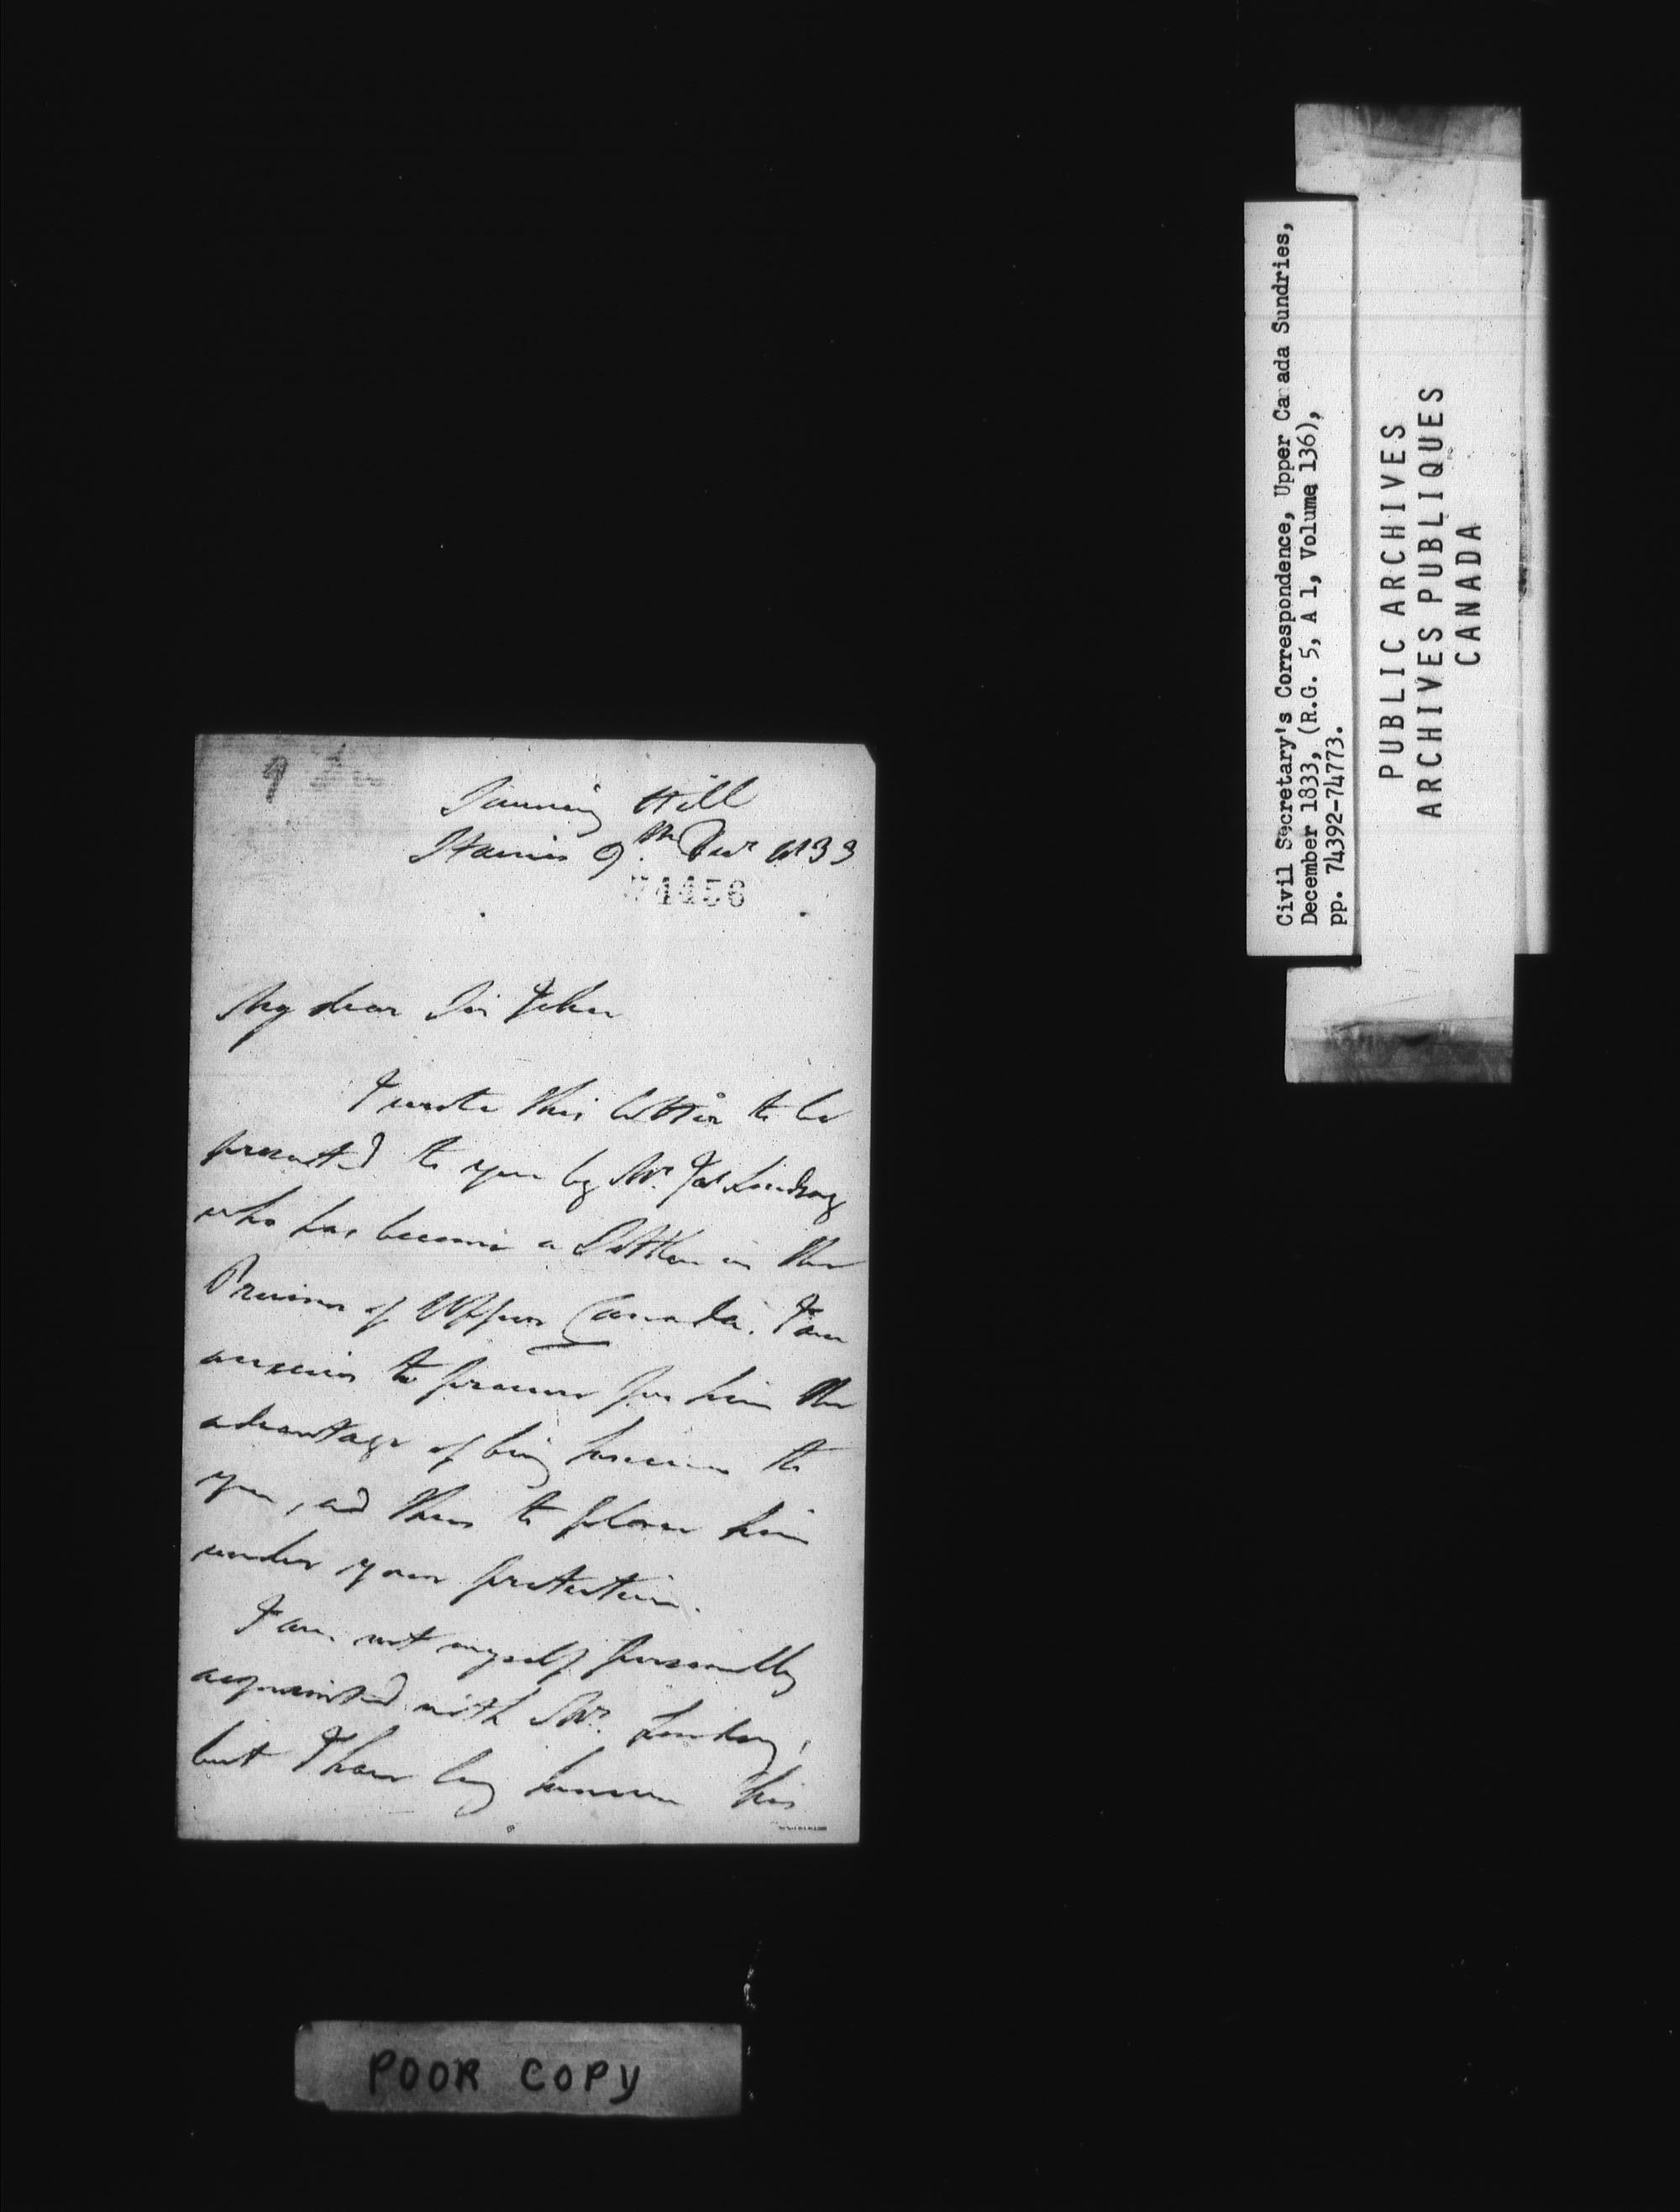 Sunning Hill
Staines 9th Decr 1833
74456
My dear Sir John
I write this letter to be
presented to you by Mr. Jas Lindsay
who has become a Settler in the
Province of Upper Canada. I am
anxious to procure for him the
advantage of being known to
you, and thus to place him
under your protection.
I am not myself personally
acquainted with Mr. Lindsay,
but I have long known his
POOR COPY
Civil Secretary's Correspondence, Upper Canada Sundries,
December 1833, (R.G. 5, A 1, Volume 136),
pp. 74392-74773.
PUBLIC ARCHIVES
ARCHIVES PUBLIQUES
CANADA